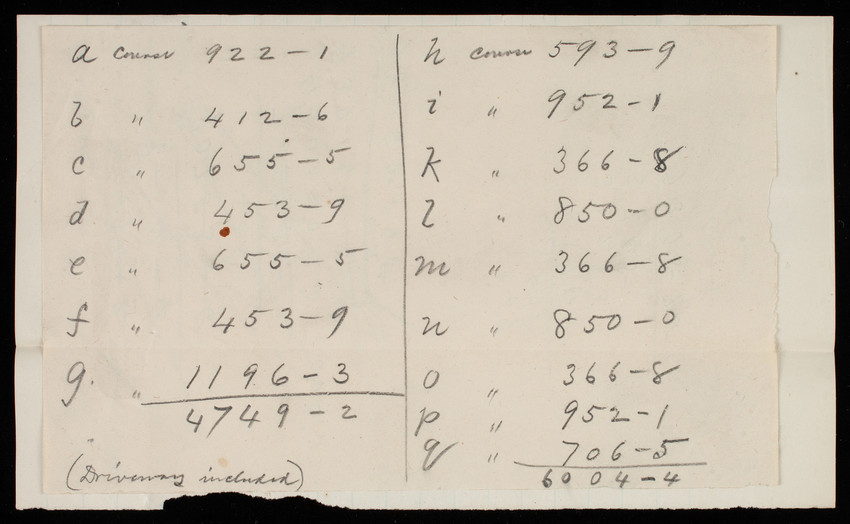 a course 922-1
b " 412-6
c " 655-5
d " 453-9
e " 655-5
f " 453-9
g. " 1196-3
4749-2
(Driveway included)
h course 593-9
i " 952-1
k " 366-8
l " 850-0
m " 366-8
n " 850-0
o " 366-8
p " 952-1
q " 706-5
6004-4